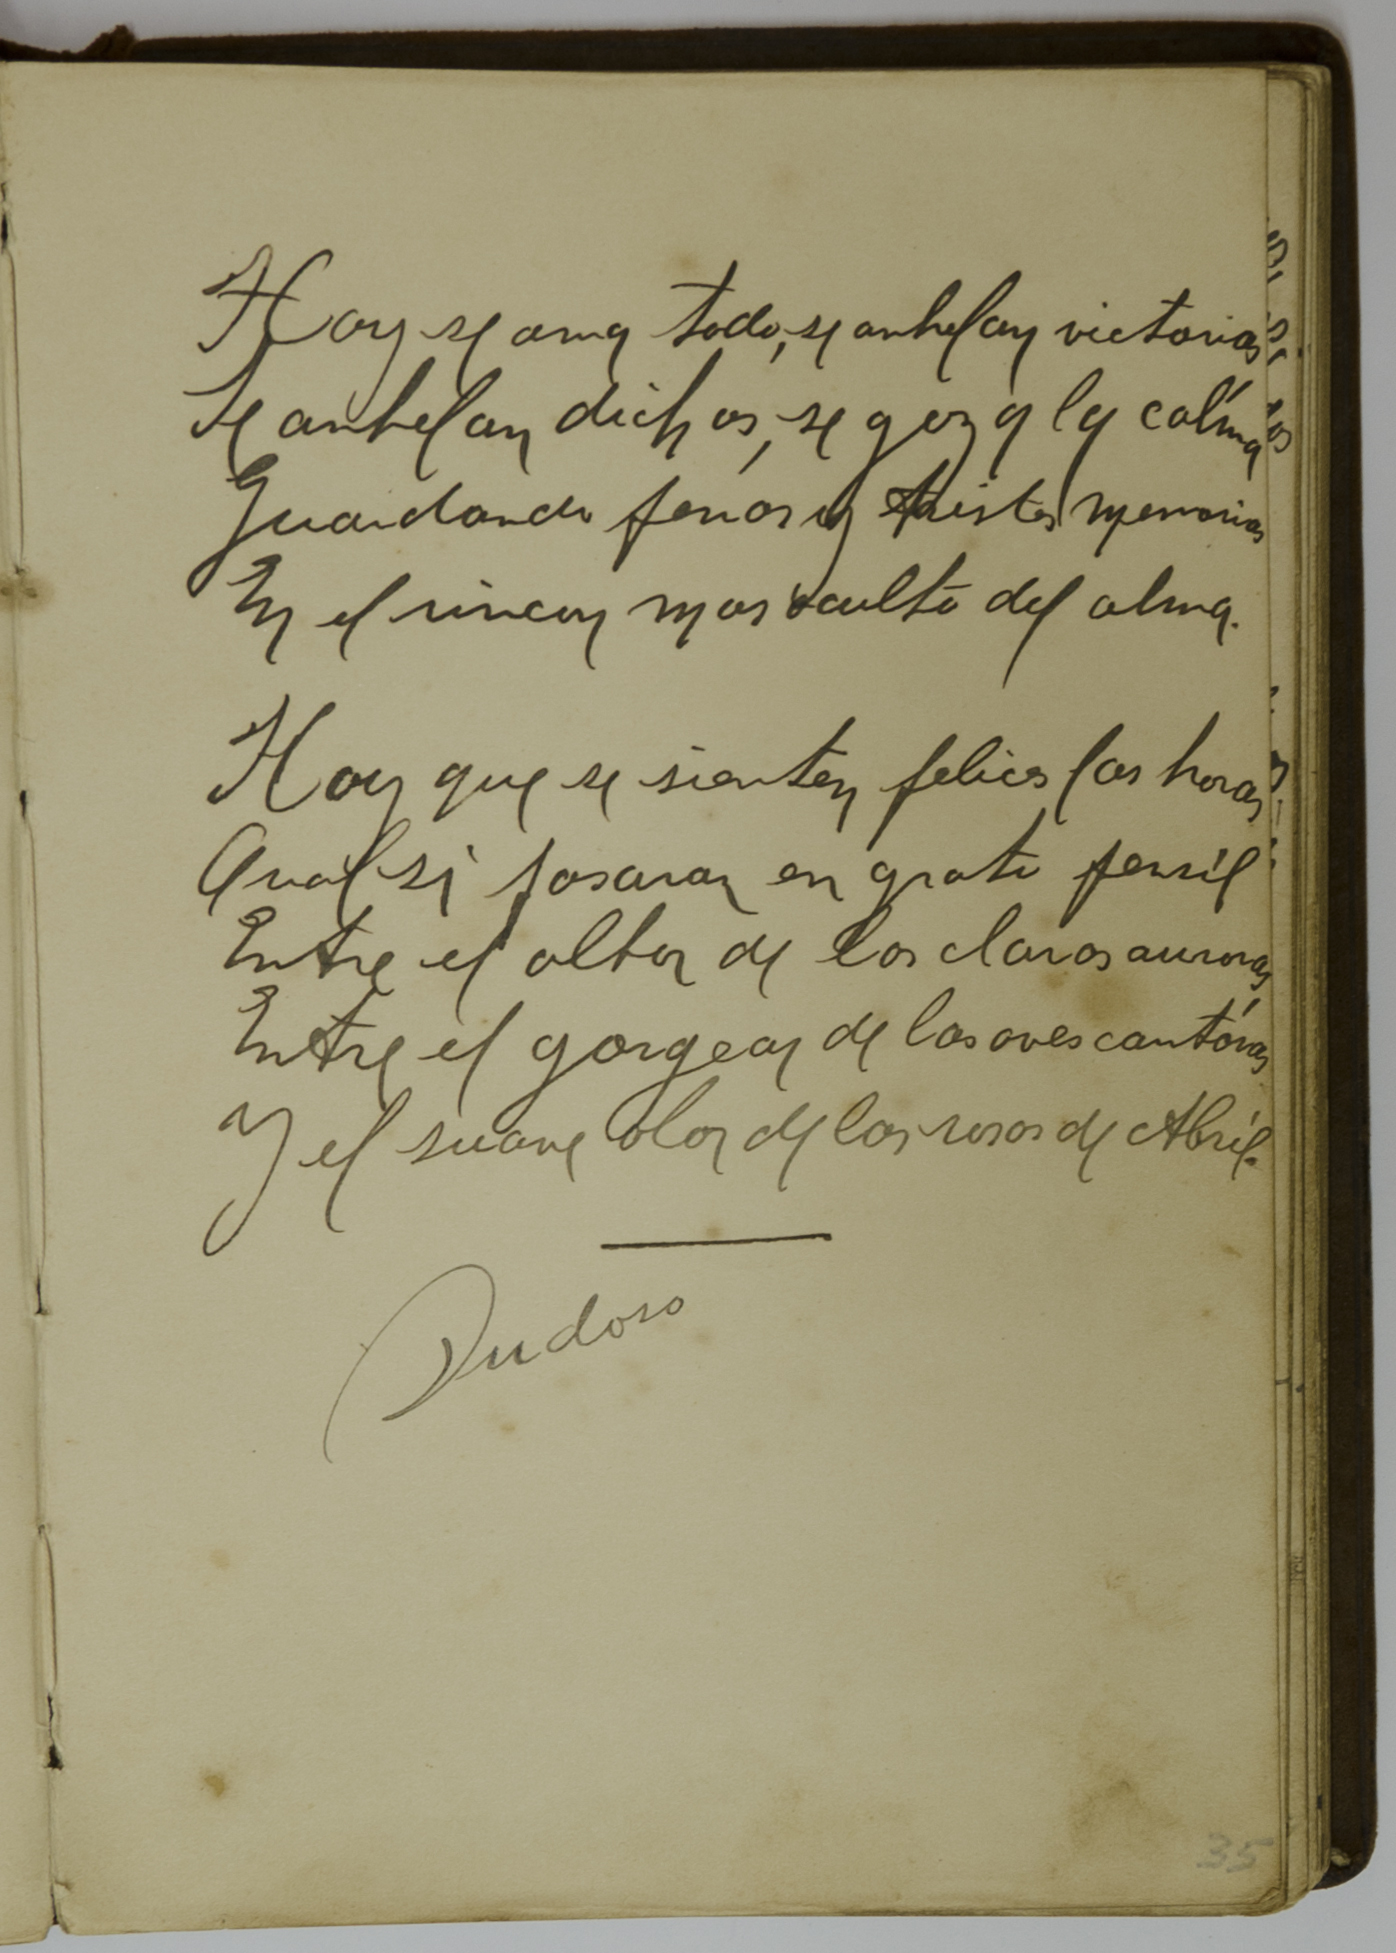 Hoy se ama todo, se anhelan victorias
Se anhelan dichas, se goza la cálma
Guardando penas y tristes memorias
En el rincon mas oculto del alma.
Hoy que se sienten felices las horas
Cual si pasaran en grato pensíl
Entre el albor de las claras auroras
Entre el gorgear de las aves cantóras
Y el suave olor de las rosas de Abril.
Dudoso
35